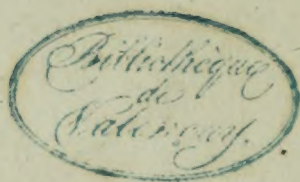 Bibliothèque
de
Valençay.